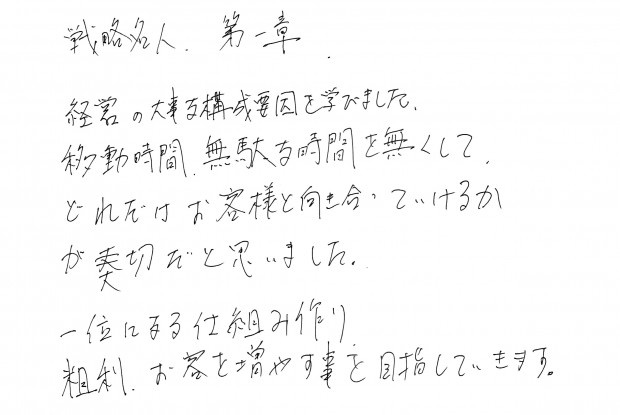 戦略名人、第一章.
経営の大事な構成要因を学びました.
移動時間、無駄な時間を無くして、
どれだけお客様と向き合っていけるか
が大切だと思いました。
一位になる仕組み作り
粗利、お客を増やす事を目指していきます。